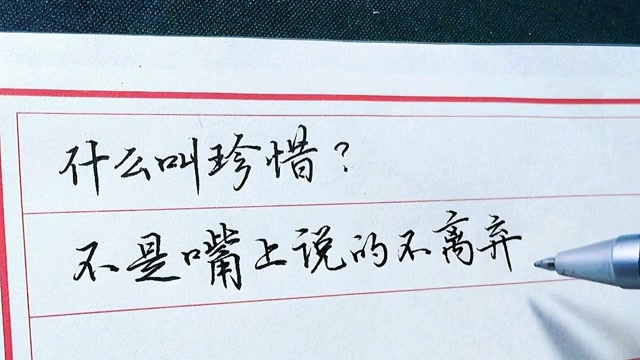 什么叫珍惜？
不是嘴上说的不离弃